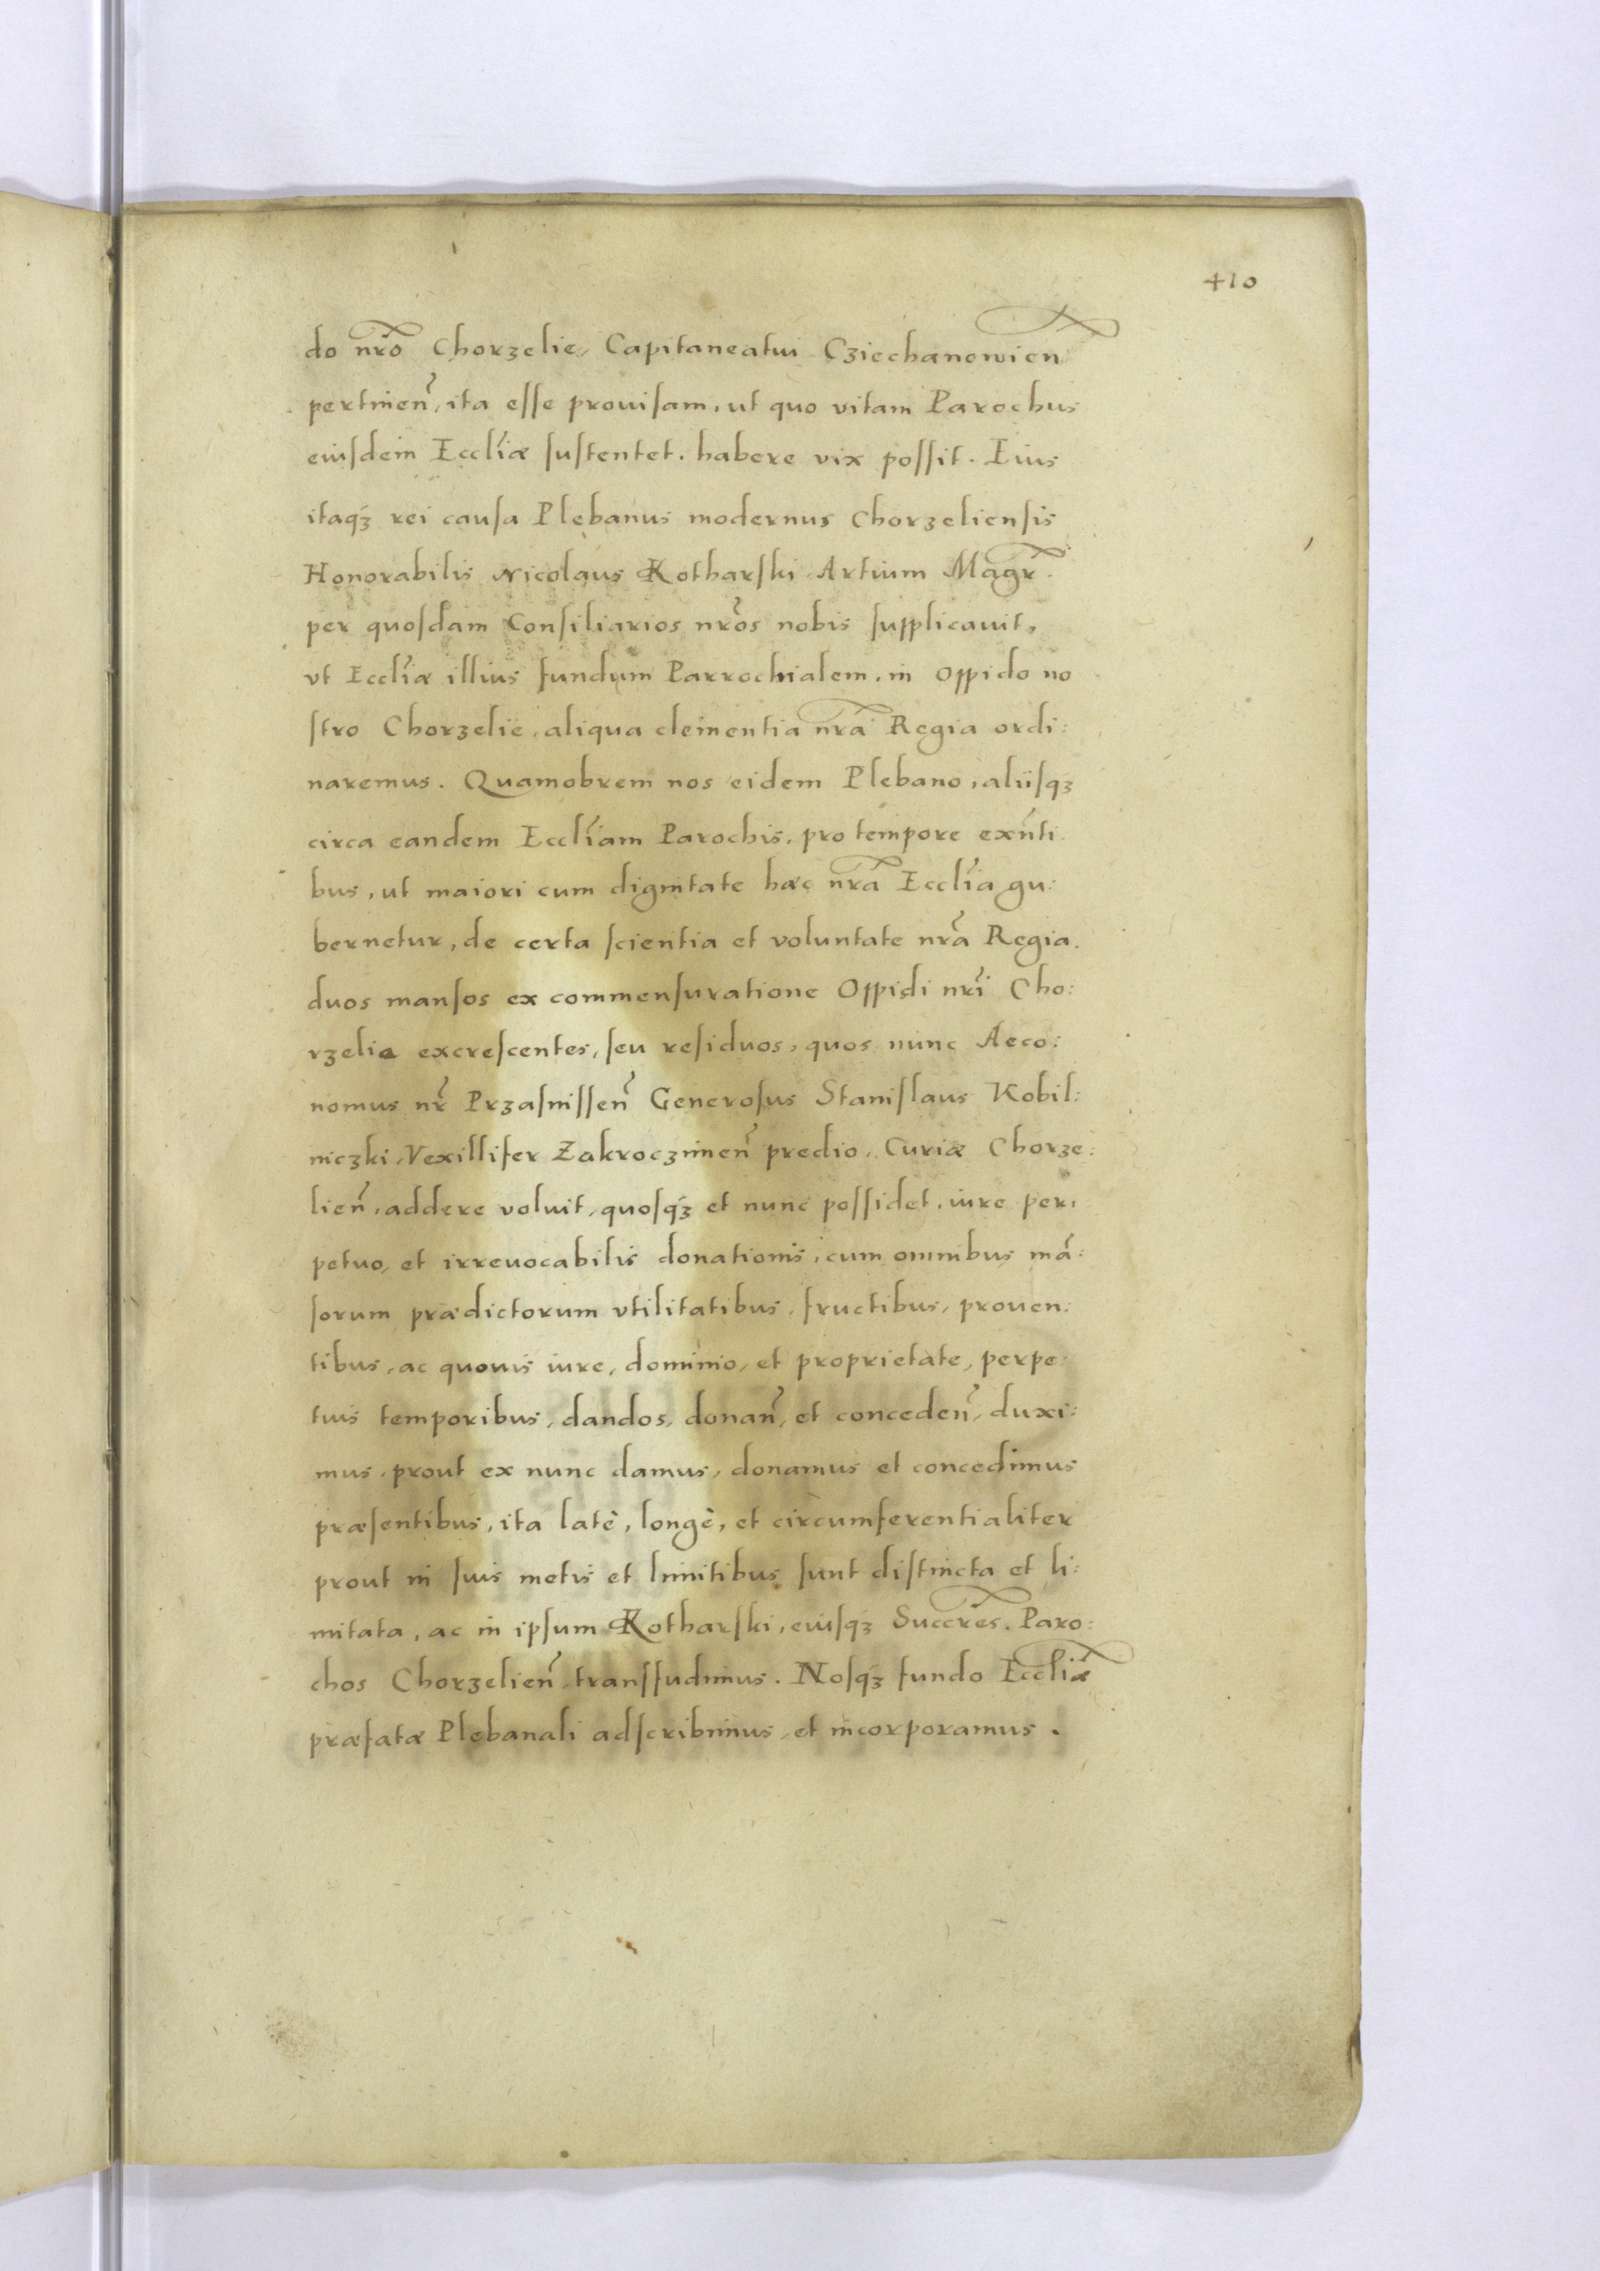 410
do nr̃o Chorzelie, Capitaneatui Cziechanowien̄
pertinen̄, ita esse prouisam, ut quo vitam Parochus
eiusdem Eccl̃iæ sustentet. habere vix possit. Eius
itaqȝ rei causa Plebanus modernus Chorzeliensis
Honorabilis Nicolaus Kotharski Artium Magr̃.
per quosdam Consiliarios nr̃os nobis supplicauit,
vt Eccl̃iæ illius fundum Parrochialem, in Oppido no
stro Chorzelie, aliqua clementia nr̃a Regia ordi:
naremus. Quamobrem nos eidem Plebano, aliisqȝ
circa eandem Eccl̃iam Parochis, pro tempore exn̄ti
bus, ut maiori cum dignitate hæc nr̃a Eccl̃ia gu:
bernetur, de certa scientia et voluntate nr̃a Regia.
duos mansos ex commensuratione Oppidi nr̃i Cho:
rzelie excrescentes, seu residuos, quos nunc Aeco:
nomus nr̃ Przasnissen̄ Generosus Stanislaus Kobil:
niczki, Vexillifer Zakroczimen̄ predio, Curiæ Chorze:
lien̄, addere voluit, quosqȝ et nunc possidet, iure per,
petuo, et irreuocabilis donationis, cum omnibus mã:
sorum prædictorum vtilitatibus, fructibus, prouen:
tibus, ac quouis iure, dominio, et proprietate, perpe:
tuis temporibus, dandos, donan̄, et conceden̄, duxi:
mus, prout ex nunc damus, donamus et concedimus
præsentibus, ita latè, longè, et circumferentialiter
prout in suis metis et limitibus sunt distincta et li:
mitata, ac in ipsum Kotharski, eiusqȝ Succr̃es. Paro:
chos Chorzelien̄ transfudimus. Nosqȝ fundo Eccl̃iæ
præfatæ Plebanali adscribimus, et incorporamus.